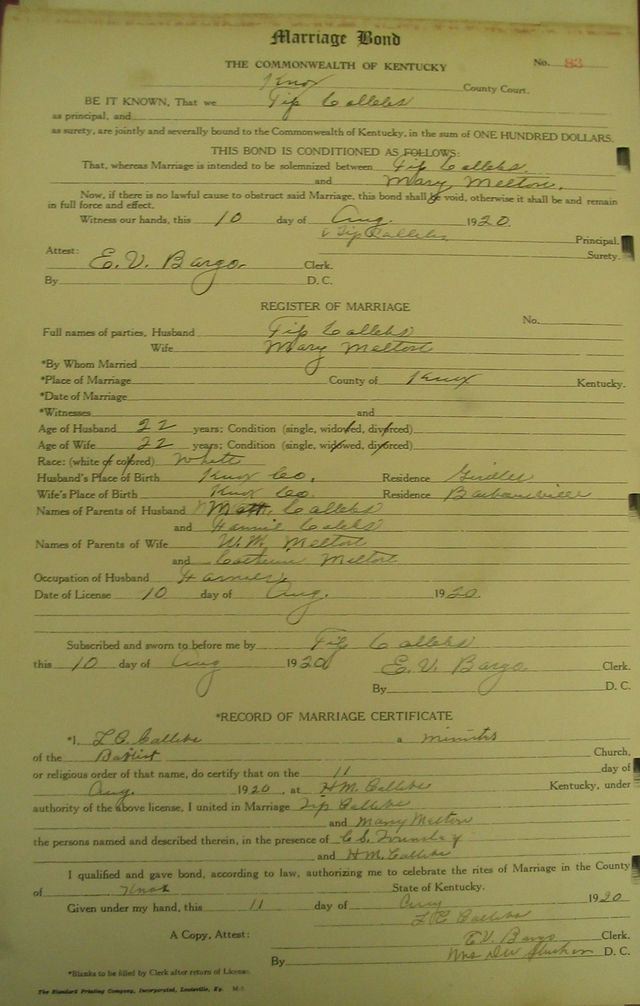 Marriage Bond
THE COMMONWEALTH OF KENTUCKY No. 83
Knox County Court.
BE IT KNOWN, That we Tip Callebs
as principal, and
as surety, are jointly and severally bound to the Commonwealth of Kentucky, in the sum of ONE HUNDRED DOLLARS.
THIS BOND IS CONDITIONED AS FOLLOWS:
That, whereas Marriage is intended to be solemnized between Tip Callebs
and Mary Melton.
Now, if there is no lawful cause to obstruct said Marriage, this bond shall be void, otherwise it shall be and remain
in full force and effect.
Witness our hands, this 10 day of Aug. 1920.
Tip Callebs Principal.
Surety.
Attest:
E. V. Bargo. Clerk.
By D. C.
REGISTER OF MARRIAGE
No.
Full names of parties, Husband Tip Callebs
Wife Mary Melton
*By Whom Married
*Place of Marriage County of Knox Kentucky.
*Date of Marriage
*Witnesses and
Age of Husband 22 years; Condition (single, widowed, divorced)
Age of Wife 22 years; Condition (single, widowed, divorced)
Race: (white or colored) White
Husband's Place of Birth Knox Co. Residence Girdler
Wife's Place of Birth Knox Co. Residence Barbourville
Names of Parents of Husband Matt. Callebs
and Callebs
Names of Parents of Wife W. M. Melton
and Melton
Occupation of Husband Farmer
Date of License 10 day of Aug. 1920.
Subscribed and sworn to before me by Tip Callebs
this 10 day of Aug 1920 E. V. Bargo Clerk.
By D. C.
*RECORD OF MARRIAGE CERTIFICATE
*I, L. C. Callebs a
of the Baptist Church,
or religious order of that name, do certify that on the 11 day of
Aug. 1920, at H M. Callebs Kentucky, under
authority of the above license, I united in Marriage Tip Callebs
and Mary Melton
the persons named and described therein, in the presence of C. S.
and H M. Callebs
I qualified and gave bond, according to law, authorizing me to celebrate the rites of Marriage in the County
of Knox State of Kentucky.
Given under my hand, this 11 day of Aug 1920
L C Callebs
A Copy, Attest: E. V. Bargo Clerk.
By Mrs D. C.
*Blanks to be filled by Clerk after return of License.
The Standard Printing Company, Incorporated, Louisville, Ky.